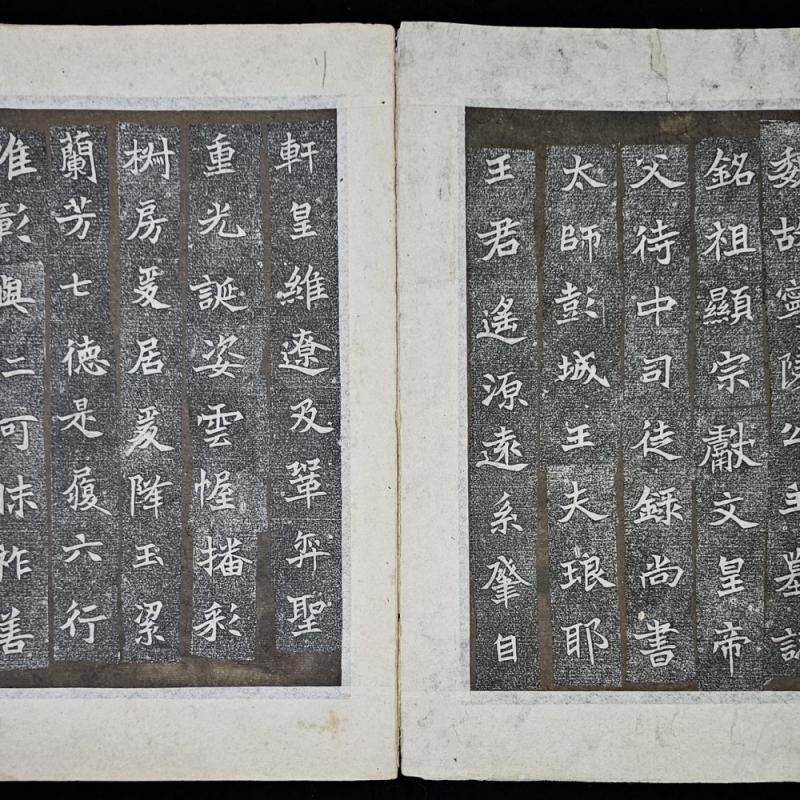 魏故寧陵公主墓誌
銘祖顯宗獻文皇帝
父待中司徒錄尚書
太師彭城王夫琅耶
王君遙源遠系肇自
軒皇維遼及鞏弈聖
重光誕姿雲幄播彩
椒房爰居爰降玉潔
蘭芳七德是履六行
惟彰與仁可恃祚善